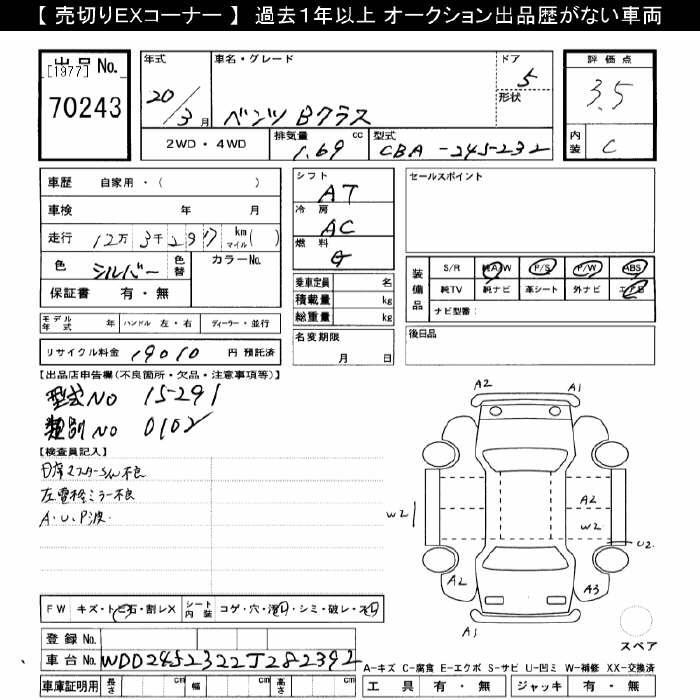 【 売切りEXコーナー 】 過去１年以上 オークション出品歴がない車両
出品 No.
[1977]
70243
年式
20/3月
車名・グレード
ベンツ Bクラス
ドア
5
形状
2WD・4WD
排気量 cc
1.69
型式
CBA-245-232
評価点
3.5
内装
C
車歴 自家用・( )
車検 年 月
走行 12万 3千 2 9 17 km マイル( )
色 シルバー 色替 カラーNo.
保証書 有・無
シフト
AT
冷房
AC
燃料
G
乗車定員 名
積載量 kg
総重量 kg
セールスポイント
装備品
S/R 純A/W P/S P/W ABS
純TV 純ナビ 革シート 外ナビ エアB
ナビ型番:
モデル年式 年 ハンドル 左・右 ディーラー・並行
名変期限
月 日
後日品
リサイクル料金 19010 円 預託済
【出品店申告欄(不良箇所・欠品・注意事項等)】
型式NO 15-291
類別NO 0102
【検査員記入】
左電格ミラー不良
A・U・P波
FW キズ・トビ石・割レX シート内装 コゲ・穴・汚レ・シミ・破レ・スレ
登録 No.
車台No. WDD2452322J282392
車庫証明用 長さ cm 幅 cm 高さ cm
A2
A1
A2
W2
W2
U2
A2
A3
A1
スペア
A-キズ C-腐食 E-エクボ S-サビ U-凹ミ W-補修 XX-交換済
工具 有・無 ジャッキ 有・無